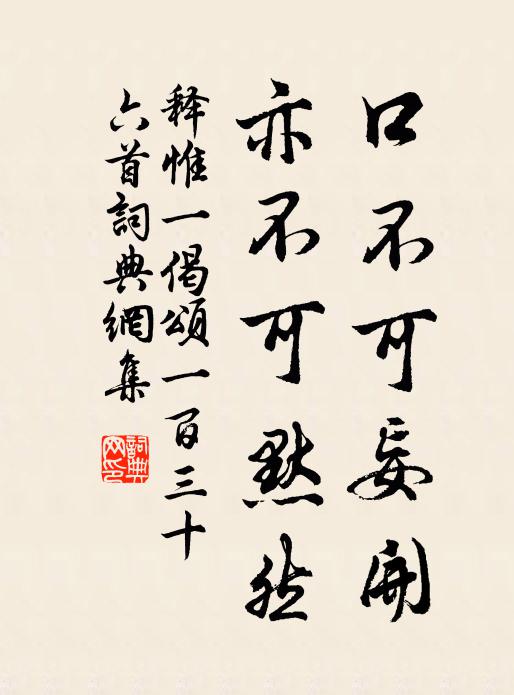 口不可妄開
亦不可默然
释惟一偈頌一百三十
六首詞典網集
詞典
网印